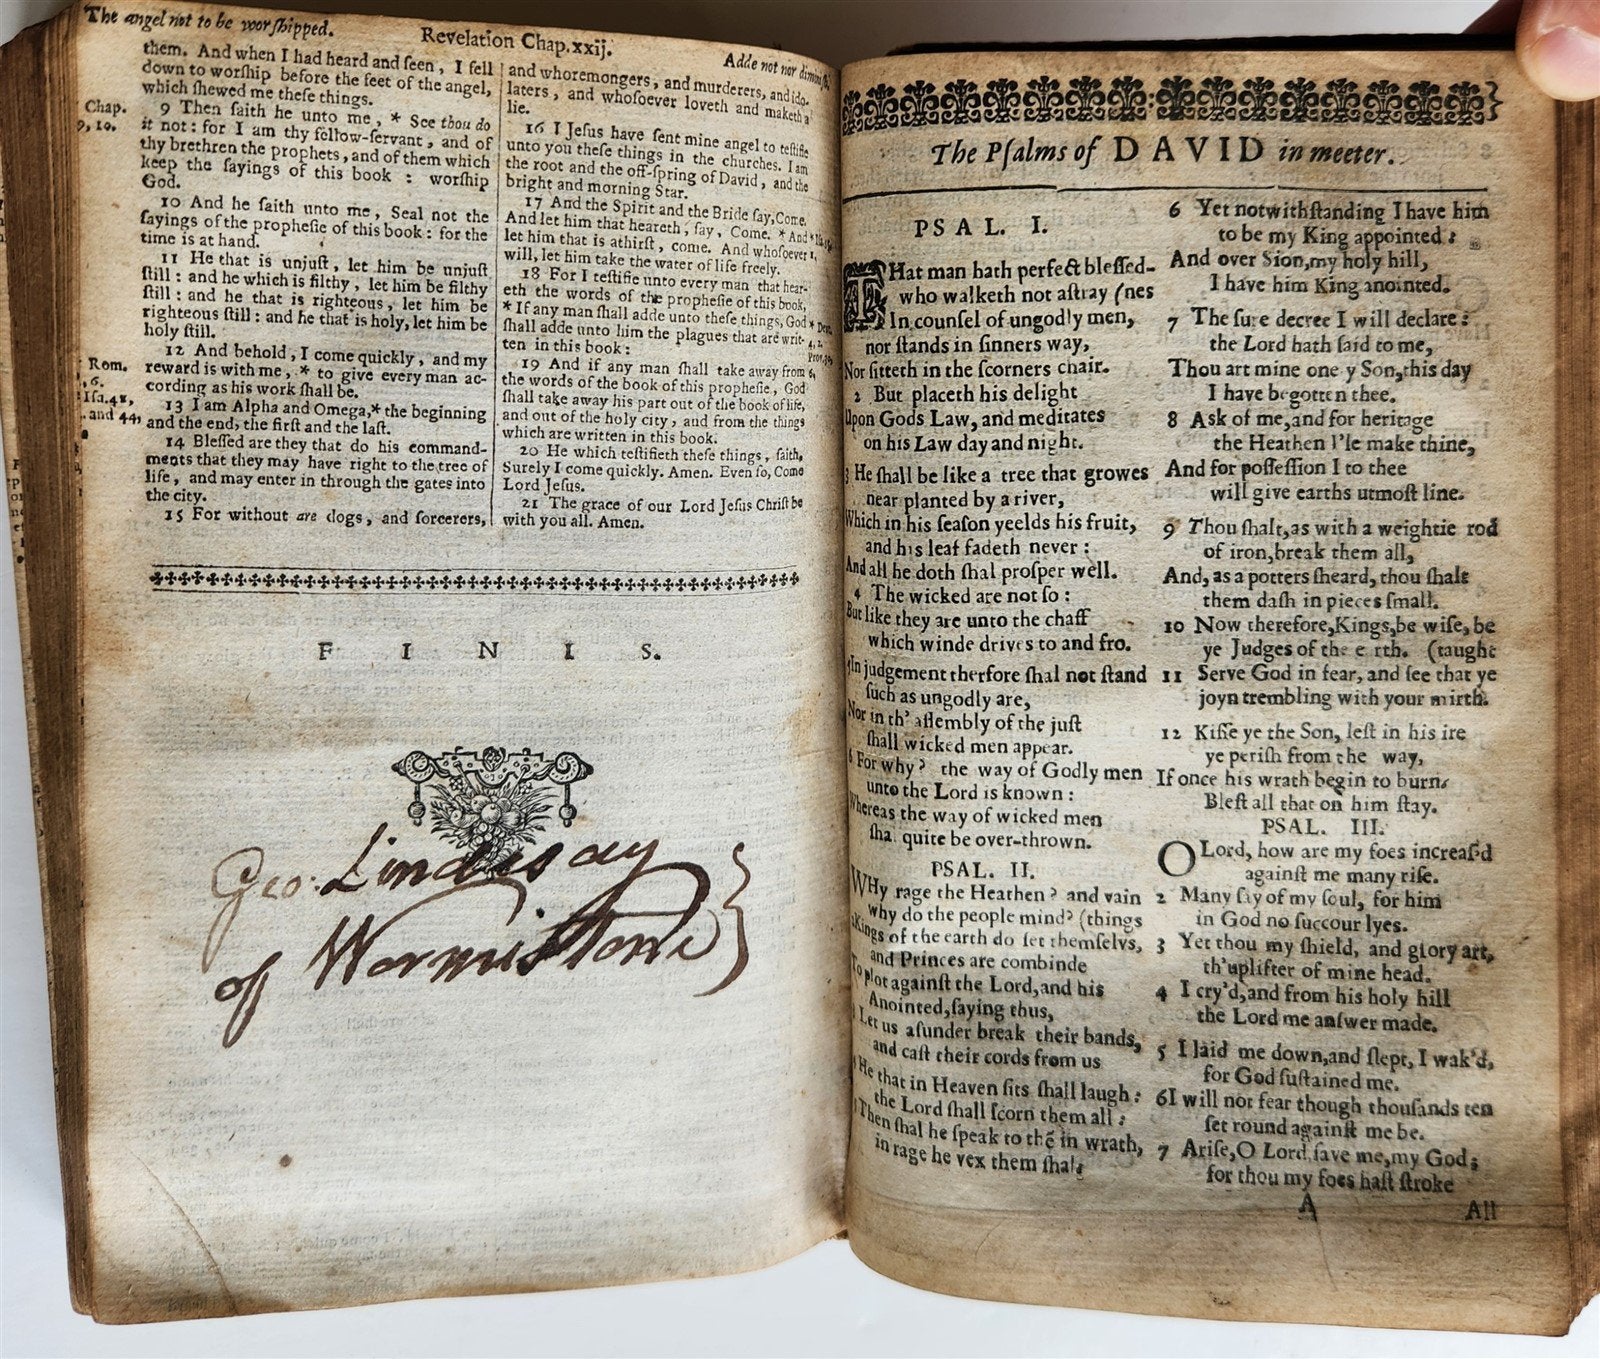 The angel not to be worſhipped.
Revelation Chap.xxij.
Adde not nor
them. And when I had heard and ſeen, I fell
down to worſhip before the feet of the angel,
which ſhewed me theſe things.
Chap.
9, 10.
9 Then ſaith he unto me, * See thou do
it not: for I am thy fellow-ſervant, and of
thy brethren the prophets, and of them which
keep the ſayings of this book: worſhip
God.
10 And he ſaith unto me, Seal not the
ſayings of the propheſie of this book: for the
time is at hand.
11 He that is unjuſt, let him be unjuſt
ſtill: and he which is filthy, let him be filthy
ſtill: and he that is righteous, let him be
righteous ſtill: and he that is holy, let him be
holy ſtill.
Rom.
6.
Iſa.41,
and 44,
12 And behold, I come quickly, and my
reward is with me, * to give every man ac-
cording as his work ſhall be.
13 I am Alpha and Omega,* the beginning
and the end, the firſt and the laſt.
14 Bleſſed are they that do his command-
ments that they may have right to the tree of
life, and may enter in through the gates into
the city.
15 For without are dogs, and ſorcerers,
and whoremongers, and murderers, and ido-
laters, and whoſoever loveth and maketh a
lie.
16 I Jeſus have ſent mine angel to teſtifie
unto you theſe things in the churches. I am
the root and the off-ſpring of David, and the
bright and morning Star.
17 And the Spirit and the Bride ſay, Come.
And let him that heareth, ſay, Come. * And
let him that is athirſt, come. And whoſoever
will, let him take the water of life freely.
18 For I teſtifie unto every man that hear-
eth the words of the propheſie of this book,
* If any man ſhall adde unto theſe things, God
ſhall adde unto him the plagues that are writ-
ten in this book:
* Deut.
4, 2.
Prov.30,
6,
19 And if any man ſhall take away from
the words of the book of this propheſie, God
ſhall take away his part out of the book of life,
and out of the holy city, and from the things
which are written in this book.
20 He which teſtifieth theſe things, ſaith,
Surely I come quickly. Amen. Even ſo, Come
Lord Jeſus.
21 The grace of our Lord Jeſus Chriſt be
with you all. Amen.
FINIS.
Geo: Lindesay
of Wormistone
The Pſalms of DAVID in meeter.
PSAL. I.
THat man hath perfect bleſſed-
who walketh not aſtray (nes
In counſel of ungodly men,
nor ſtands in ſinners way,
Nor ſitteth in the ſcorners chair.
2 But placeth his delight
Upon Gods Law, and meditates
on his Law day and night.
3 He ſhall be like a tree that growes
near planted by a river,
Which in his ſeaſon yeelds his fruit,
and his leaf fadeth never:
And all he doth ſhal proſper well.
4 The wicked are not ſo:
But like they are unto the chaff
which winde drives to and fro.
In judgement therfore ſhal not ſtand
ſuch as ungodly are,
Nor in th' aſſembly of the juſt
ſhall wicked men appear.
6 For why? the way of Godly men
unto the Lord is known:
Whereas the way of wicked men
ſhal quite be over-thrown.
PSAL. II.
WHy rage the Heathen? and vain
why do the people mind? (things
Kings of the earth do ſet themſelvs,
and Princes are combinde
To plot againſt the Lord,and his
Anointed,ſaying thus,
Let us aſunder break their bands,
and caſt their cords from us
He that in Heaven ſits ſhall laugh:
the Lord ſhall ſcorn them all:
Then ſhal he ſpeak to thē in wrath,
in rage he vex them ſhal:
6 Yet notwithſtanding I have him
to be my King appointed:
And over Sion,my holy hill,
I have him King anointed.
7 The ſure decree I will declare:
the Lord hath ſaid to me,
Thou art mine onely Son,this day
I have begotten thee.
8 Ask of me,and for heritage
the Heathen I'le make thine,
And for poſſeſſion I to thee
will give earths utmoſt line.
9 Thou ſhalt,as with a weightie rod
of iron,break them all,
And, as a potters ſheard, thou ſhalt
them daſh in pieces ſmall.
10 Now therefore,Kings,be wiſe, be
ye Judges of the earth. (taught
11 Serve God in fear, and ſee that ye
joyn trembling with your mirth.
12 Kiſſe ye the Son, leſt in his ire
ye periſh from the way,
If once his wrath begin to burn:
Bleſt all that on him ſtay.
PSAL. III.
O Lord, how are my foes increaſ'd
againſt me many riſe.
2 Many ſay of my ſoul, for him
in God no ſuccour lyes.
3 Yet thou my ſhield, and glory art,
th'uplifter of mine head.
4 I cry'd,and from his holy hill
the Lord me anſwer made.
5 I laid me down,and ſlept, I wak'd,
for God ſuſtained me.
6I will not fear though thouſands ten
ſet round againſt me be.
7 Ariſe,O Lord,ſave me,my God;
for thou my foes haſt ſtroke
A
All